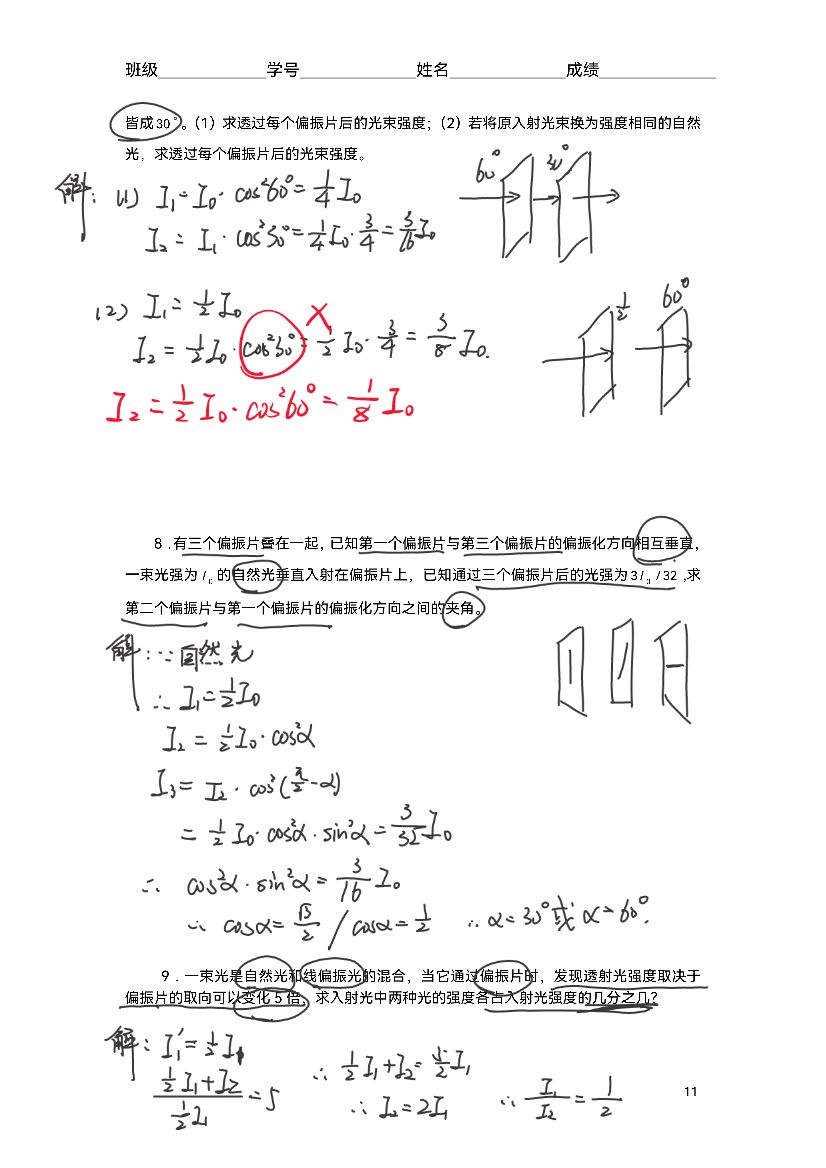 班级 学号 姓名 成绩
皆成30°。（1）求透过每个偏振片后的光束强度；（2）若将原入射光束换为强度相同的自然
光，求透过每个偏振片后的光束强度。
解: (1) I₁=I₀·cos²60°=1/4 I₀
60° 30°
I₂ = I₁·cos²30°=1/4 I₀·3/4=3/16 I₀
(2) I₁=1/2 I₀
1/2 60°
I₂=1/2 I₀·cos²30°=1/2 I₀·3/4=3/8 I₀.
I₂=1/2 I₀·cos²60°=1/8 I₀
8．有三个偏振片叠在一起，已知第一个偏振片与第三个偏振片的偏振化方向相互垂直，
一束光强为I₀的自然光垂直入射在偏振片上，已知通过三个偏振片后的光强为3I₀/32,求
第二个偏振片与第一个偏振片的偏振化方向之间的夹角。
解:∵自然光
∴ I₁=1/2 I₀
I₂=1/2 I₀·cos²α
I₃= I₂·cos²(π/2-α)
=1/2 I₀·cos²α·sin²α=3/32 I₀
∴ cos²α·sin²α=3/16 I₀
∴ cosα=√3/2 / cosα=1/2 ∴α=30°或α=60°.
9．一束光是自然光和线偏振光的混合，当它通过偏振片时，发现透射光强度取决于
偏振片的取向可以变化5倍，求入射光中两种光的强度各占入射光强度的几分之几？
解: I₁'=1/2 I₁
∴ 1/2 I₁+I₂=5/2 I₁
(1/2 I₁+I₂)/(1/2 I₁)=5
∴ I₂=2I₁ ∴ I₁/I₂=1/2
11